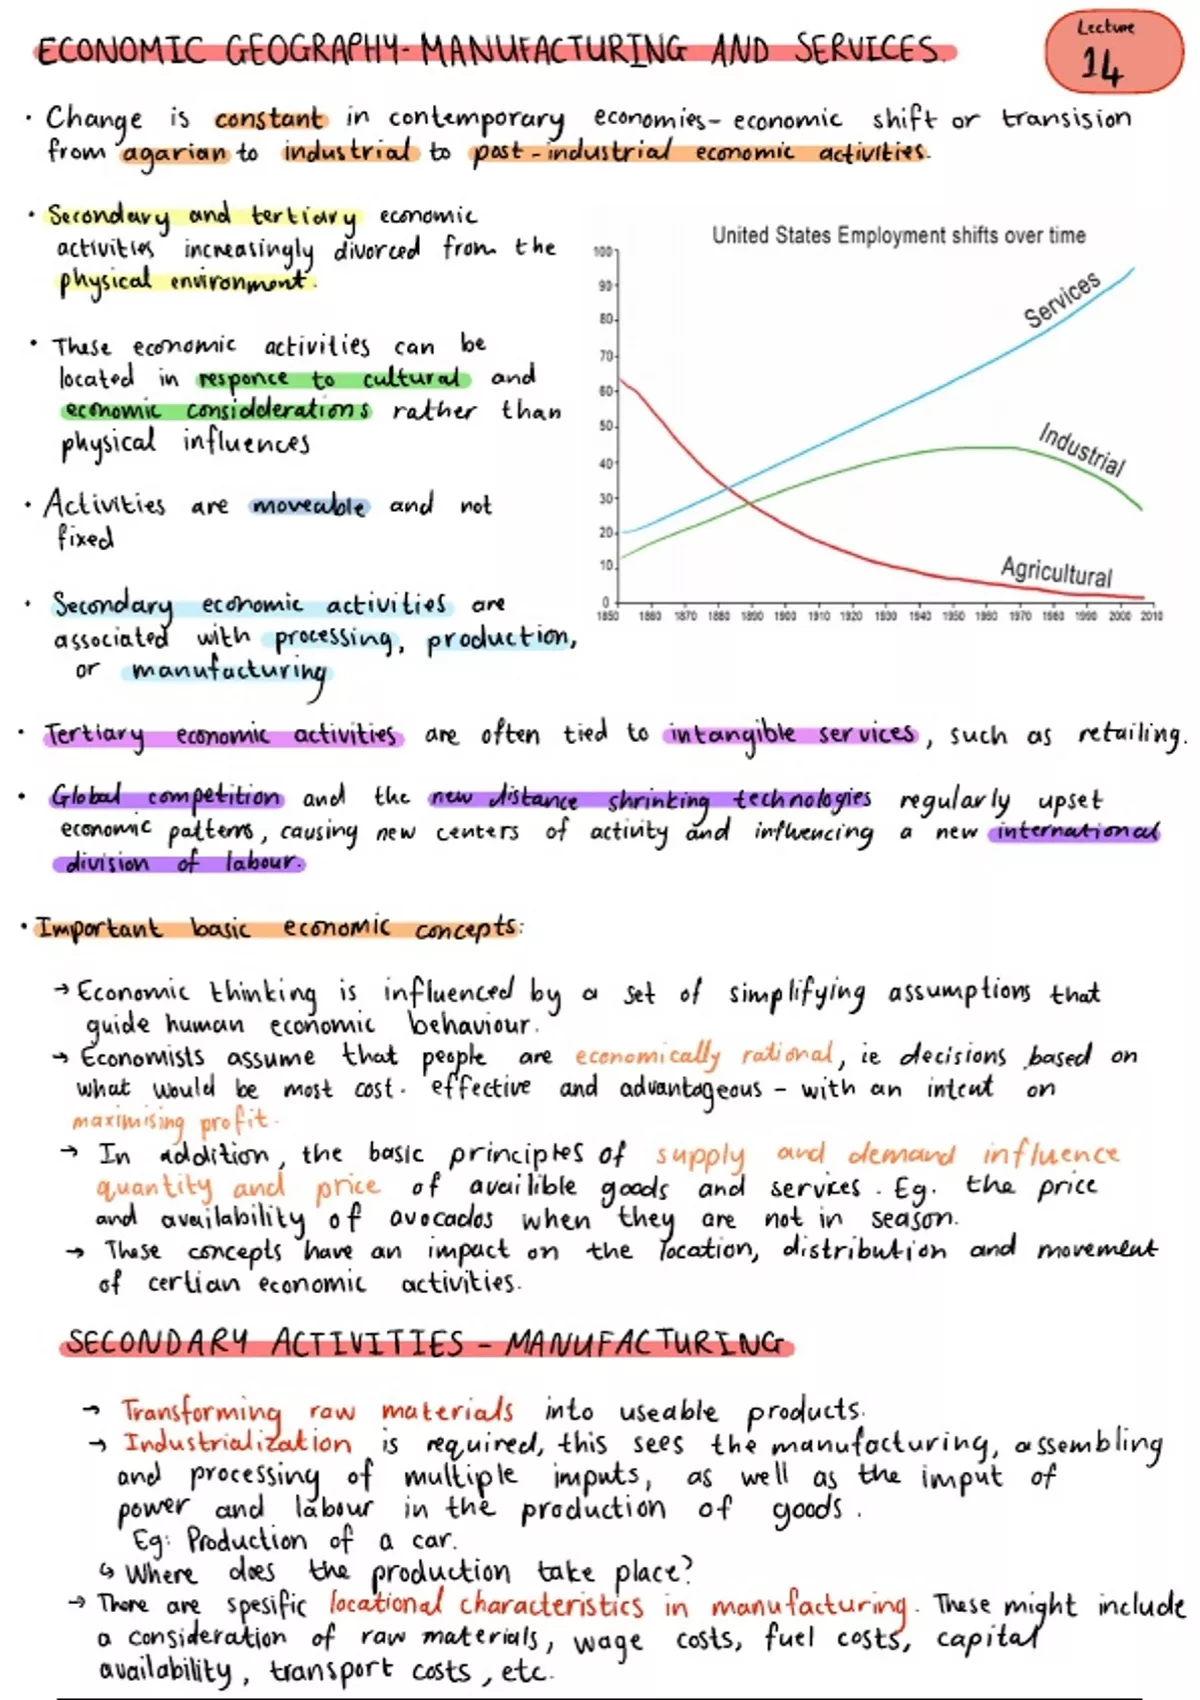 ECONOMIC GEOGRAPHY- MANUFACTURING AND SERVICES.
Lecture
14
· Change is constant in contemporary economies- economic shift or transision
from agarian to industrial to post-industrial economic activities.
· Secondary and tertiary economic
activities increasingly divorced from the
physical environment.
· These economic activities can be
located in responce to cultural and
economic considderations rather than
physical influences
· Activities are moveable and not
fixed
· Secondary economic activities are
associated with processing, production,
or manufacturing
United States Employment shifts over time
100
90
80
70
60
50
40
30
20
10
0
1850 1860 1870 1880 1890 1900 1910 1920 1930 1940 1950 1960 1970 1980 1990 2000 2010
Services
Industrial
Agricultural
· Tertiary economic activities are often tied to intangible services, such as retailing.
· Global competition and the new distance shrinking technologies regularly upset
economic patterns, causing new centers of activity and influencing a new international
division of labour.
· Important basic economic concepts:
→ Economic thinking is influenced by a set of simplifying assumptions that
guide human economic behaviour.
→ Economists assume that people are economically rational, ie decisions based on
what would be most cost-effective and advantageous - with an intent on
maximising profit.
→ In addition, the basic principles of supply and demand influence
quantity and price of availible goods and services. Eg. the price
and availability of avocados when they are not in season.
→ These concepts have an impact on the location, distribution and movement
of certian economic activities.
SECONDARY ACTIVITIES - MANUFACTURING
→ Transforming raw materials into useable products.
→ Industrialization is required, this sees the manufacturing, assembling
and processing of multiple imputs, as well as the imput of
power and labour in the production of goods.
Eg: Production of a car.
↳ Where does the production take place?
→ There are spesific locational characteristics in manufacturing. These might include
a consideration of raw materials, wage costs, fuel costs, capital
availability, transport costs, etc.